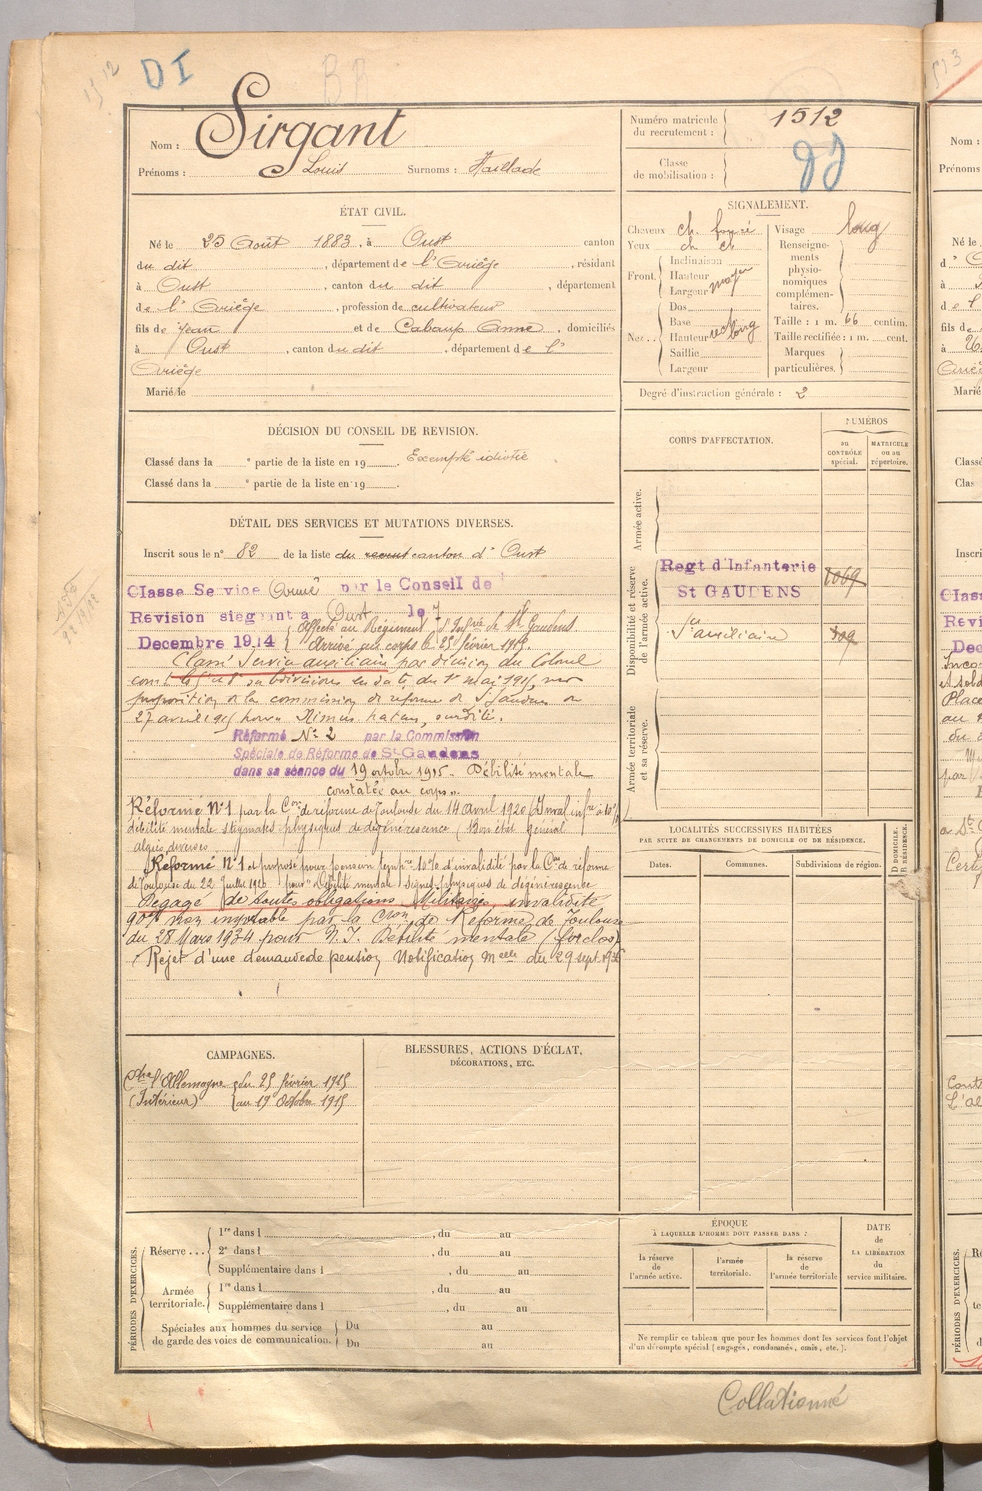 1512
DI
BA
Nom : Sirgant
Prénoms : Louis Surnoms :
Numéro matricule du recrutement : 1512
Classe de mobilisation :
ÉTAT CIVIL.
Né le 25 Août 1883, à Oust canton
du dit, département de l'Ariège, résidant
à Oust, canton du dit, département
de l'Ariège, profession de cultivateur
fils de Jean et de Cabaup Anne, domiciliés
à Oust, canton du dit, département de l'
Ariège
Marié le
SIGNALEMENT.
Cheveux ch. foncé
Yeux ch. cl.
Front. Inclinaison
Hauteur
Largeur moyen
Nez.. Dos
Base
Hauteur
Saillie
Largeur
Visage long
Renseignements physionomiques complémentaires.
Taille : 1 m. 66 centim.
Taille rectifiée : 1 m. cent.
Marques particulières.
Degré d'instruction générale : 2
DÉCISION DU CONSEIL DE REVISION.
Classé dans la e partie de la liste en 19 . Exempté idiotie
Classé dans la e partie de la liste en 19 .
DÉTAIL DES SERVICES ET MUTATIONS DIVERSES.
Inscrit sous le n° 82 de la liste du canton d'Oust
Classe Service Armé par le Conseil de
Revision siegeant a Oust le 7
Decembre 1914 Affecté au Régiment d'Infrie de St Gaudens
Arrivé au corps le 25 février 1915.
Classé Service auxiliaire par décision du Colonel
comt les subdivisions en date du 1er Mai 1915, sur
proposition de la commission de réforme de St Gaudens du
27 avril 1915 surdité.
Réformé N° 2 par la Commission
Spéciale de Réforme de St Gaudens
dans sa séance du 19 octobre 1915. Débilité mentale
constatée au corps.
Réformé N°1 par la Con de réforme de Toulouse du 14 avril 1920 (Inval infre à 10%)
débilité mentale stigmates physiques de dégénérescence (Bon état général
algies diverses
Réformé N°1 et proposé pour pension tempre 10% d'invalidité par la Con de réforme
de Toulouse du 22 Juillet 1920 pour Débilité mentale Signes physiques de dégénérescence
Dégagé de toutes obligations Militaires, invalidité
90% non imputable par la Cion de Réforme de Toulouse
du 28 Mars 1934 pour N.I. Débilité mentale (forclos)
Rejet d'une demande de pension Notification Melle du 29 sept.
CORPS D'AFFECTATION.
NUMÉROS
au CONTRÔLE spécial.
MATRICULE ou au répertoire.
Armée active.
Disponibilité et réserve de l'armée active.
Regt d'Infanterie
St GAUDENS 1069
Sce auxiliaire 109
Armée territoriale et sa réserve.
LOCALITÉS SUCCESSIVES HABITÉES
PAR SUITE DE CHANGEMENTS DE DOMICILE OU DE RÉSIDENCE.
Dates. Communes. Subdivisions de région.
D DOMICILE. R RÉSIDENCE.
CAMPAGNES.
Ctre l'Allemagne du 25 février 1915
(Intérieur) au 19 Octobre 1915
BLESSURES, ACTIONS D'ÉCLAT,
DÉCORATIONS, ETC.
PÉRIODES D'EXERCICES.
Réserve ... 1re dans l , du au
2e dans l , du au
Supplémentaire dans l , du au
Armée territoriale. 1re dans l , du au
Supplémentaire dans l , du au
Spéciales aux hommes du service de garde des voies de communication. Du au
Du au
ÉPOQUE
À LAQUELLE L'HOMME DOIT PASSER DANS :
la réserve de l'armée active.
l'armée territoriale.
la réserve de l'armée territoriale
DATE de LA LIBÉRATION du service militaire.
Ne remplir ce tableau que pour les hommes dont les services font l'objet
d'un décompte spécial (engagés, condamnés, omis, etc.).
Collationné